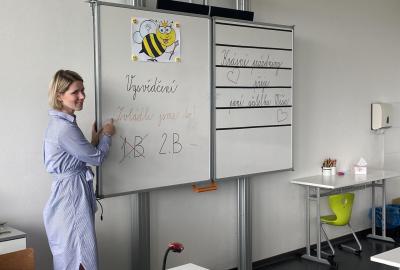 Vysvědčení
Zvládli jsme to!
1.B 2.B
Krásné prázdniny
přeje
paní učitelka